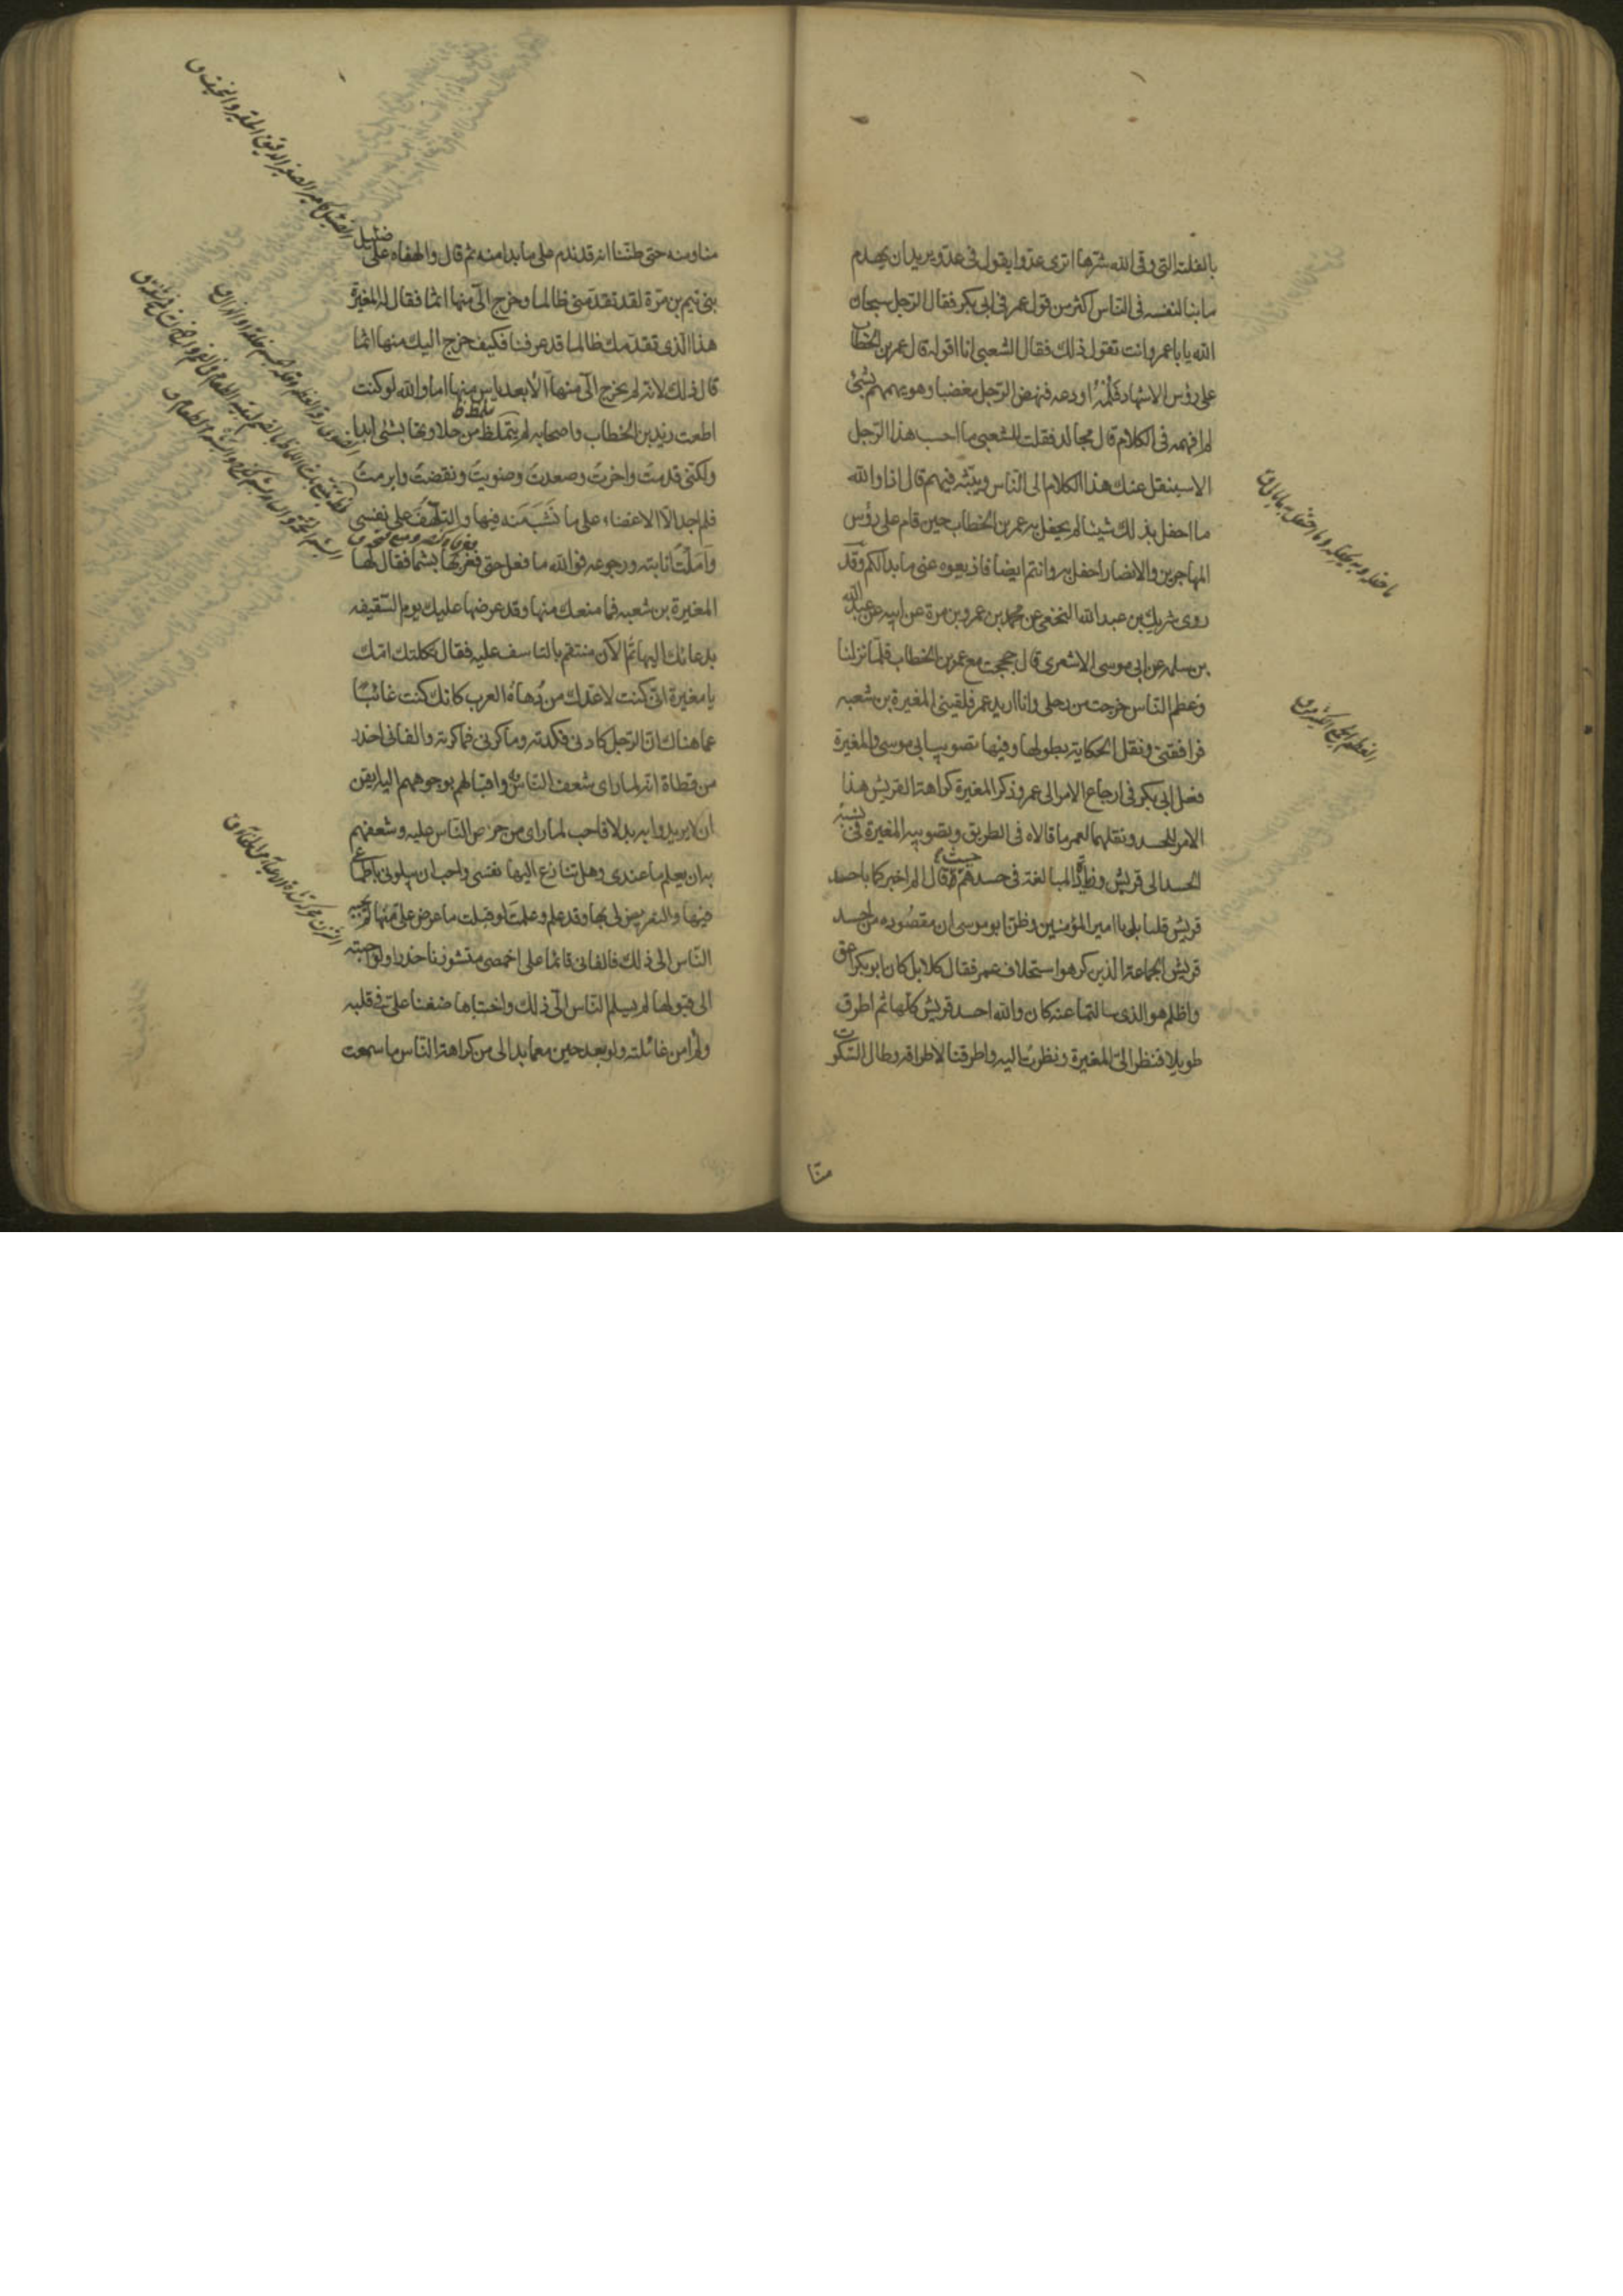 بالفلتة التي وقى الله شرها اترى عدوا يقول في عدو يريد ان يهدم
ما بنا لنفسه في الناس اكثر من قول عمر في ابي بكر فقال الرجل سبحان
الله يا با عمر وانت تقول ذلك فقال الشعبي انا اقوله قال عمر بن الخطاب
على رؤس الاشهاد فلمه او دعه فنهض الرجل مغضبا وهو يهمهم بشئ
لم افهمه في الكلام قال مجالد فقلت للشعبي ما احسب هذا الرجل
الا سينقل عنك هذا الكلام الى الناس ويبثه فيهم قال اذا والله
ما احفل بذلك شيئا لم يحفل به عمر بن الخطاب حين قام على رؤس
المهاجرين والانصار احفل به وانتم ايضا فاذيعوه عنى ما بدا لكم وقد
روى شريك بن عبد الله النخعي عن محمد بن عمرو بن مرة عن ابيه عن عبد الله
بن سلمه عن ابي موسى الاشعري قال حججت مع عمر بن الخطاب فلما نزلنا
وعظم الناس خرجت من رحلي وانا اريد عمر فلقيني المغيرة بن شعبه
فرافقني ونقل الحكاية بطولها وفيها تصويب ابي موسى والمغيرة
فعل ابي بكر في ارجاع الامر الى عمر وذكر المغيرة كراهة القريش هذا
الامر للحسد ونقلهما لعمر ما قالاه في الطريق وتصويبه المغيرة في نسبة
الحسد الى قريش المبالغة في حسدهم حيث قال الم اخبركما باحسد
قريش قلنا بلى يا امير المؤمنين وظن ابو موسى ان مقصوده من احسد
قريش الجماعة الذين كرهوا استخلاف عمر فقال كلا بل كان ابو بكر اعق
واظلم هو الذي سالتما عنه كان والله احسد قريش كلها ثم اطرق
طويلا فنظر الي المغيرة ونظرت اليه واطرقنا لاطراقه وطال السكوت
منا
منا ومنه حتى ظننا انه قد ندم على ما بدا منه ثم قال والهفاه على ضئيل
بني تيم بن مرة لقد تقدمني ظالما وخرج الي منها اثما فقال له المغيرة
هذا الذي تقدمك ظالما قد عرفنا فكيف خرج اليك منها اثما
قال ذلك لانه لم يخرج الي منها الا بعد ياس منها اما والله لو كنت
اطعت زيد بن الخطاب واصحابه لم يتملظ من حلاوتها بشئ ابدا
ولكنني قدمت واخرت وصعدت وصوبت ونقضت وابرمت
فلم اجد الا الاغضاء على ما نشب منه فيها والتلهف على نفسي
واملت انابته ورجوعه فوالله ما فعل حتى فغر بها بشما فقال لها
المغيرة بن شعبه فما منعك منها وقد عرضها عليك يوم السقيفه
بدعائك اليها ثم الآن منتقم بالتاسف عليه فقال ثكلتك امك
يا مغيرة اني كنت لاعدك من دهاة العرب كانك كنت غائبا
عما هناك ان الرجل كادني فكدته وماكرني فماكرته والفاني احذر
من قطاة انه لما راى شعف الناس به واقبالهم بوجوههم اليه ايقن
ان لا يريدوا به بدلا فاحب لما راى من حرص الناس عليه وشعفهم
به ان يعلم ما عندي وهل تنازع اليها نفسي واحب ان يبلوني باطماعي
فيها والتعريض لي بها وقد علم وعلمت لو قبلت ما عرض على منها لم يجبه
الناس الى ذلك فالفاني قائما على اخمصي مستوفزا حذرا ولو اجبته
الى قبولها لم يسلم الناس الي ذلك واختباها ضغنا علي في قلبه
ولم امن غائلته ولو بعد حين مع ما بدا لي من كراهة الناس ما سمعت